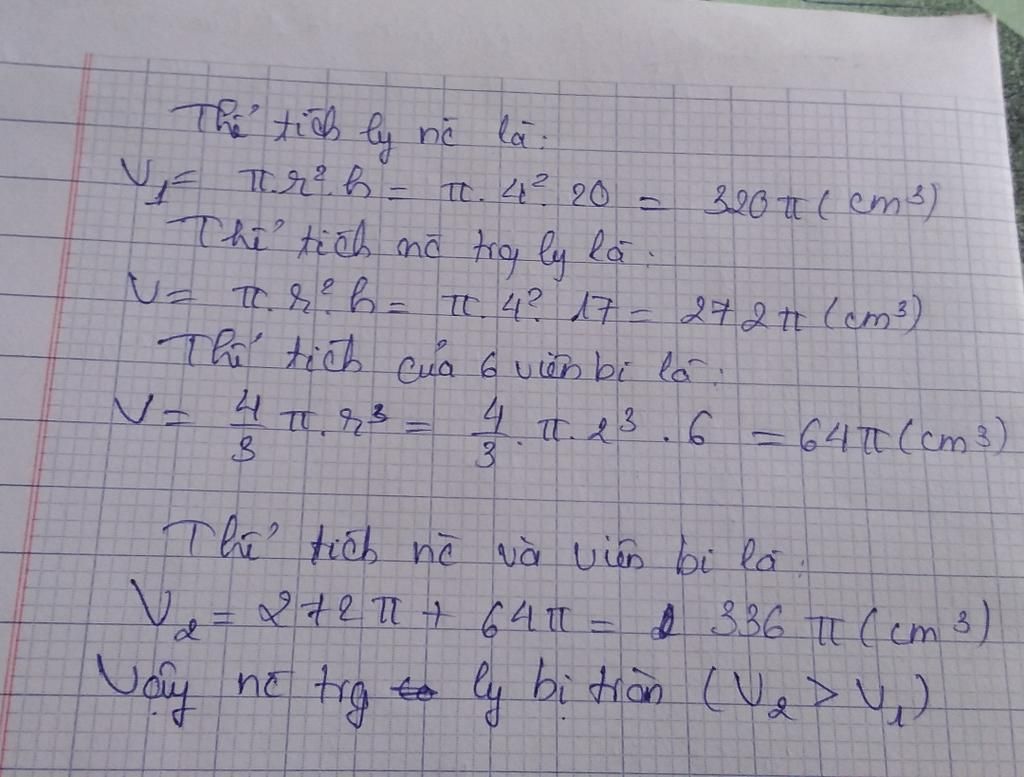 Thể tích ly nc là:
V₁ = π.r².h = π.4².20 = 320π (cm³)
Thể tích nc trg ly là:
V = π.r².h = π.4².17 = 272π (cm³)
Thể tích của 6 viên bi là:
V = 4/3 π.r³ = 4/3.π.2³.6 = 64π (cm³)
Thể tích nc và viên bi là:
V₂ = 272π + 64π = 336π (cm³)
Vậy nc trg ly bị tràn (V₂ > V₁)